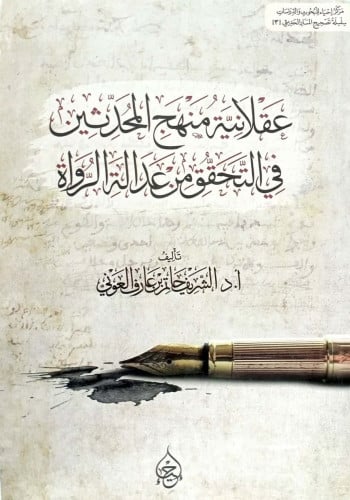 مركز إحياء للبحوث والدراسات
سلسلة تصحيح المسار الحديثي (٣)
عقلانية منهج المحدثين
في التحقق من عدالة الرواة
تأليف
أ.د. الشريف حاتم بن عارف العوني
إحياء